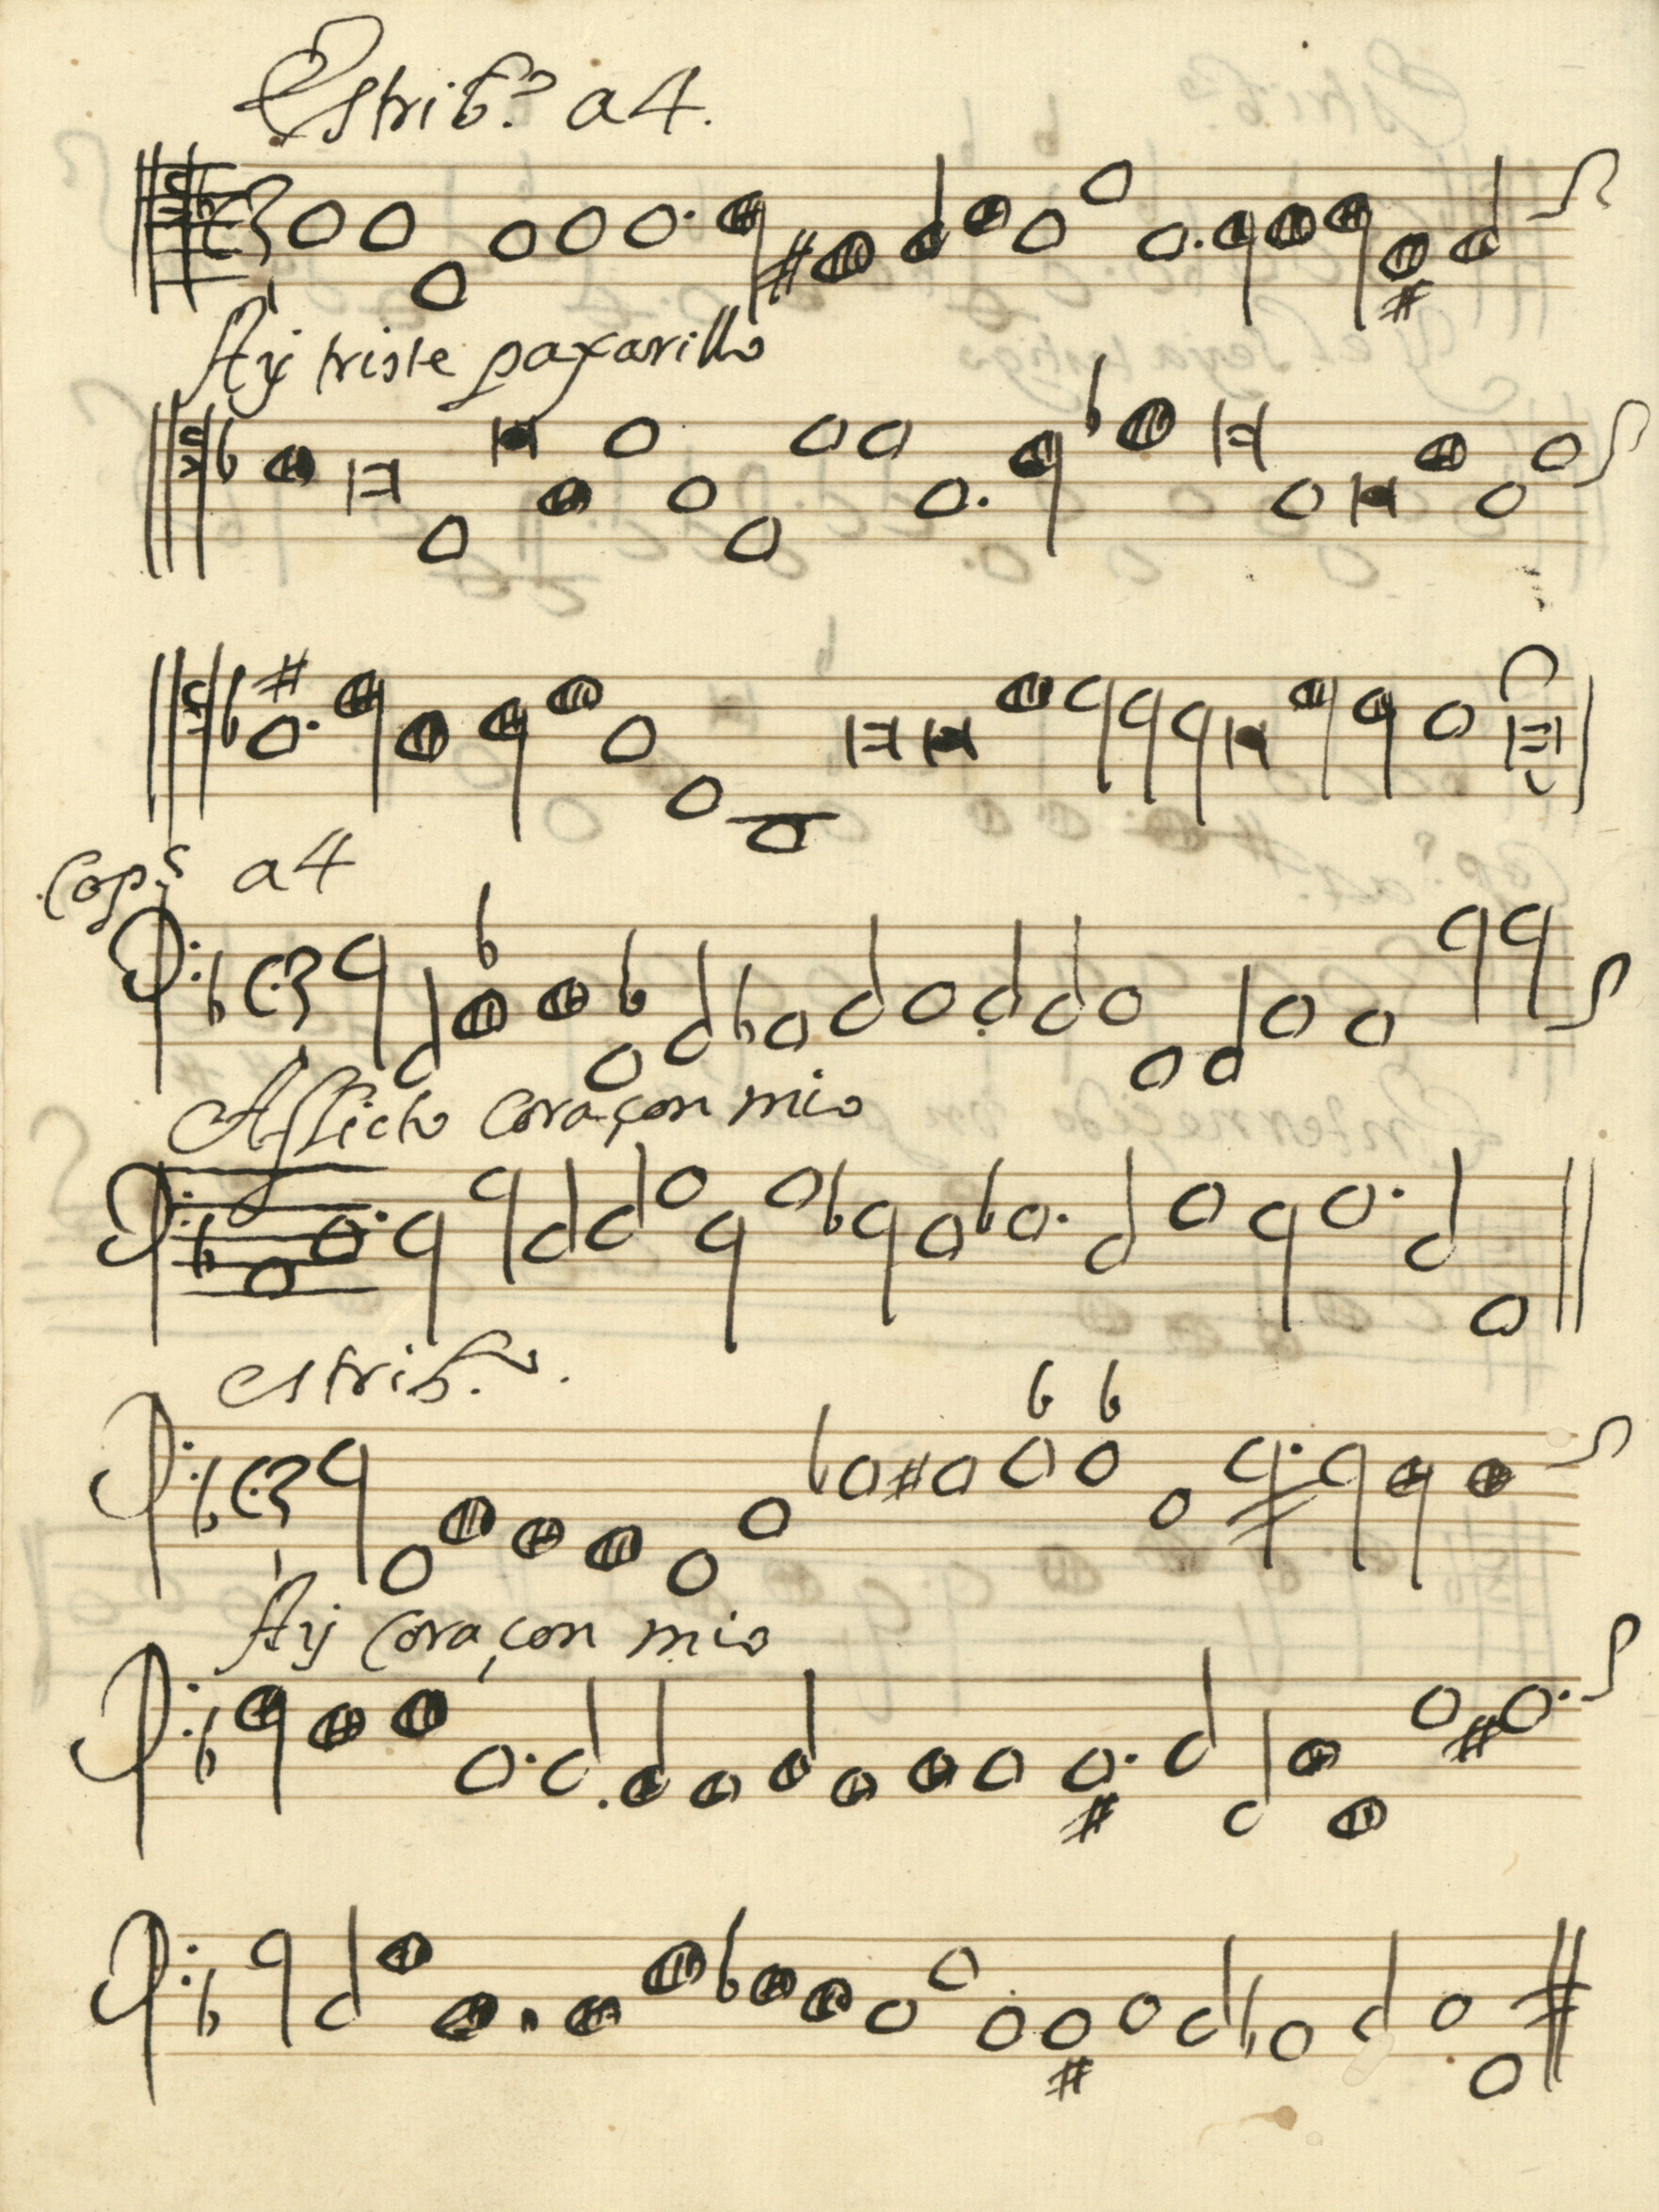 Estrib.º a4.
Ay triste paxarillo
Cop.s a4
Aflicto coraçon mio
estrib.º.
Ay coraçon mio